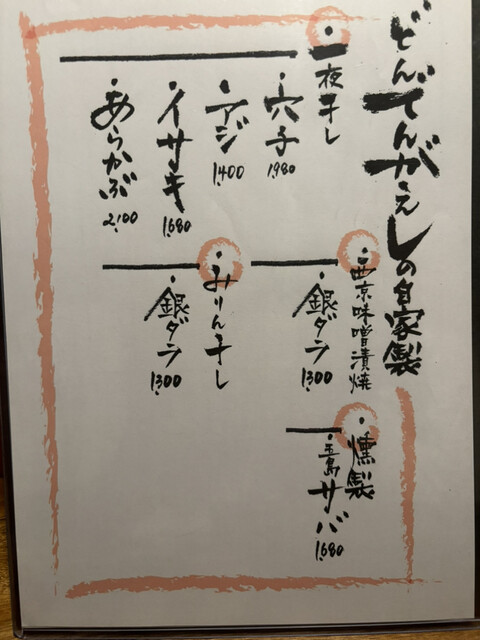 どんでんがえしの自家製
一夜干し
・穴子
1980
・アジ
1,400
・イサキ
1,680
・あらかぶ
2,100
・西京味噌漬焼
・銀ダラ
1300
・みりん干し
・銀ダラ
1300
・燻製
・五島サバ
1,680